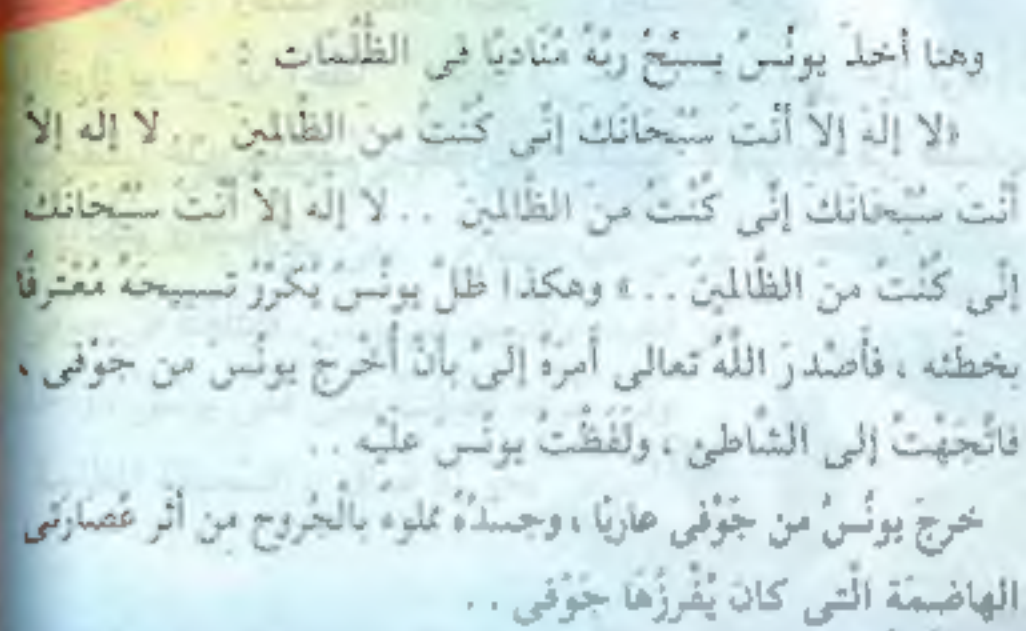 وهنا أخذَ يونُسُ يسبِّحُ ربَّهُ مُنَاديًا فى الظُّلُمَات :
«لا إلَهَ إلاَّ أنْتَ سُبْحانَكَ إنِّى كُنْتُ من الظَّالمينَ .. لا إلَهَ إلاَّ
أنْتَ سُبْحَانَكَ إنِّى كُنْتُ من الظَّالمينَ .. لا إلَهَ إلاَّ أنْتَ سُبْحَانَكَ
إنِّى كُنْتُ منَ الظَّالمينَ ..» وهكذا ظلَّ يونُسُ يُكَرِّرُ تسبيحَهُ مُعْتَرفًا
بخطئه ، فأصْدرَ اللَّهُ تعالى أمرَهُ إلَىَّ بأنْ أُخْرجَ يونُسَ من جَوْفى ،
فاتَّجَهْتُ إلى الشَّاطئ ، ولَفَظْتُ يونُسَ علَيْه ..
خرجَ يونُسُ من جَوْفى عاريًا ، وجسَدُهُ مملوءٌ بالْجُروح من أثر عُصَارَتى
الهاضمَة الَّتى كانَ يُفْرزُهَا جَوْفى ..